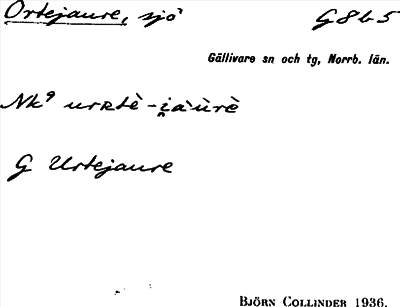 Ortejaure, sjö G8b5
Gällivare sn och tg, Norrb. län.
Nk⁹ urʀtè-i̯a'ùrè
G Urtejaure
BJÖRN COLLINDER 1936.